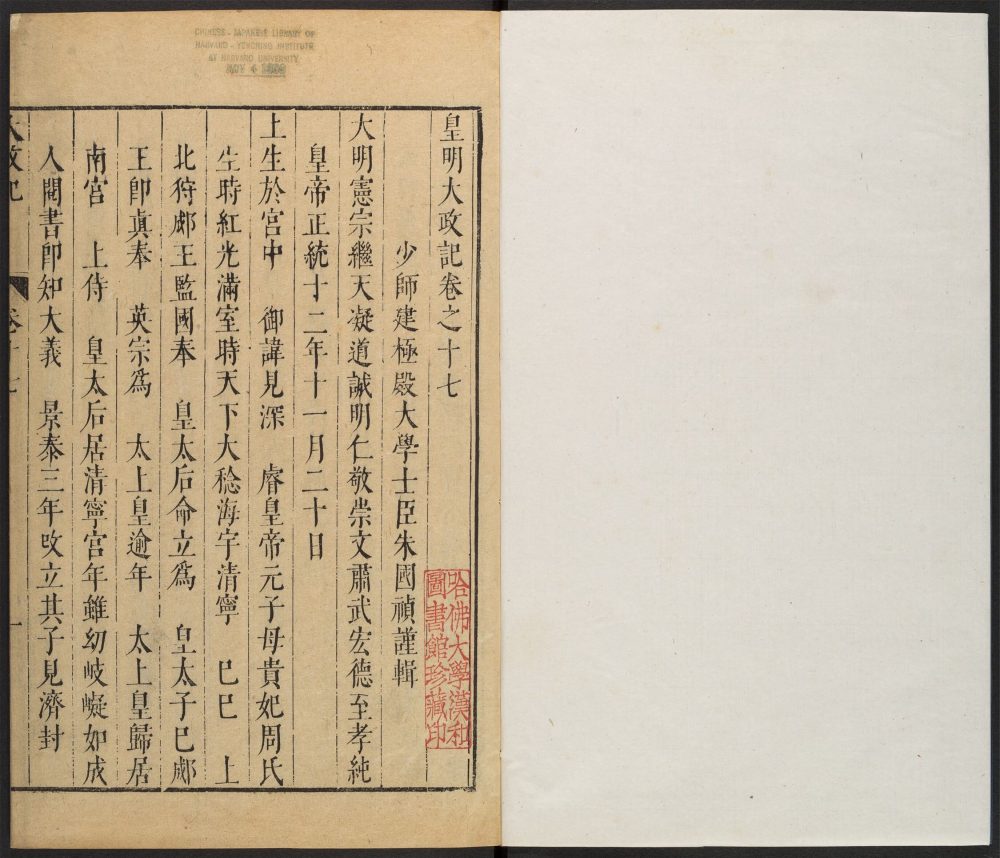 CHINESE-JAPANESE LIBRARY OF
HARVARD-YENCHING INSTITUTE
AT HARVARD UNIVERSITY
皇明大政記卷之十七
少師建極殿大學士臣朱國禎謹輯
大明憲宗繼天凝道誠明仁敬崇文肅武宏德至孝純
皇帝正統十二年十一月二十日
上生於宮中 御諱見深 睿皇帝元子母貴妃周氏
生時紅光滿室時天下大稔海宇清寧 巳巳 上
北狩郕王監國奉 皇太后命立爲 皇太子巳郕
王卽眞奉 英宗爲 太上皇逾年 太上皇歸居
南宮 上侍 皇太后居清寧宮年雖幼岐嶷如成
人閱書卽知大義 景泰三年改立其子見濟封
大政記 卷十七 一
哈佛大學漢和
圖書館珍藏印